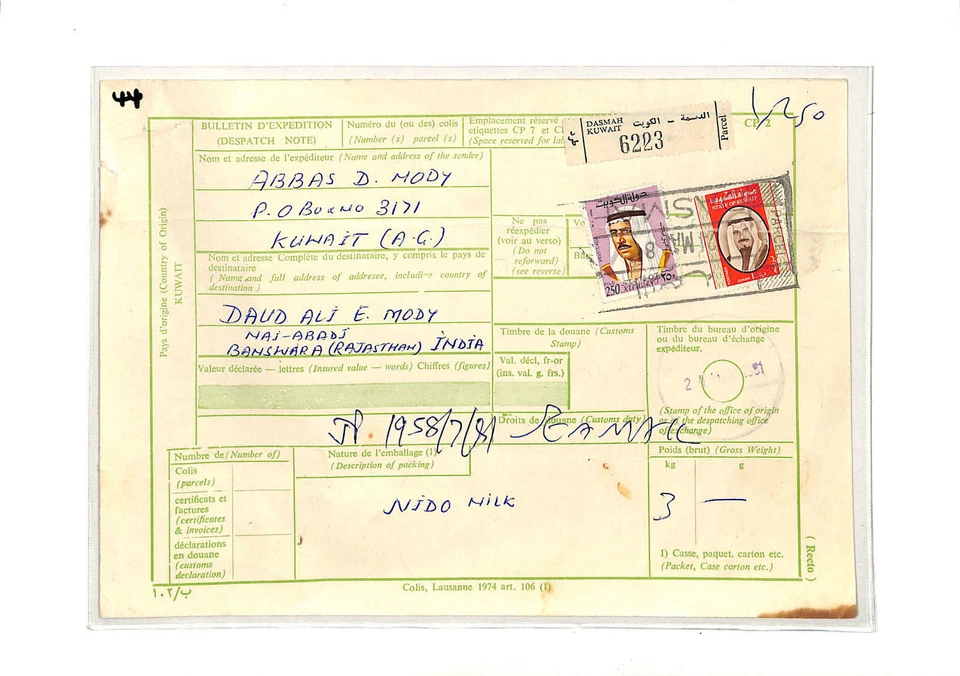 44
1/250
BULLETIN D'EXPEDITION
(DESPATCH NOTE)
Numéro du (ou des) colis
(Number (s) parcel (s)
Emplacement réservé
etiquettes CP 7 et C
(Space reserved for lab
DASMAH الدسمة - الكويت
KUWAIT
6223
Parcel
CP 2
Nom et adresse de l'expéditeur (Name and address of the sender)
ABBAS D. MODY
P.O Box NO 3171
KUWAIT (A.G.)
Nom et adresse Complète du destinataire, y compris le pays de
destinataire
(Name and full address of addresee, including country of
destination)
DAUD ALI E. MODY
NAI-ABADI
BANSWARA (RAJASTHAN) INDIA
Pays d'origine (Country of Origin)
KUWAIT
Ne pas
réexpédier
(voir au verso)
(Do not
reforward)
(see reverse)
دولة الكويت
250 ٢٥٠
دولة الكويت
STATE OF KUWAIT
PARCEL
Valeur déclarée — lettres (Insured value — words) Chiffres (figures)
Timbre de la douane (Customs
Stamp)
Val. décl, fr-or
(ins. val. g. frs.)
Timbre du bureau d'origine
ou du bureau d'échange
expéditeur.
(Stamp of the office of origin
or of the despatching office
of exchange)
Droits de douane (Customs duty)
1958/7/81
Numbre de (Number of)
Colis
(parcels)
certificats et
factures
(certificates
& invoices)
déclarations
en douane
(customs
declaration)
Nature de l'emballage (1)
(Description of packing)
NIDO MILK
Poids (brut) (Gross Weight)
kg g
3 —
1) Casse, paquet. carton etc.
(Packet, Case carton etc.)
(Recto)
١٠٢/ب
Colis, Lausanne 1974 art. 106 (1)